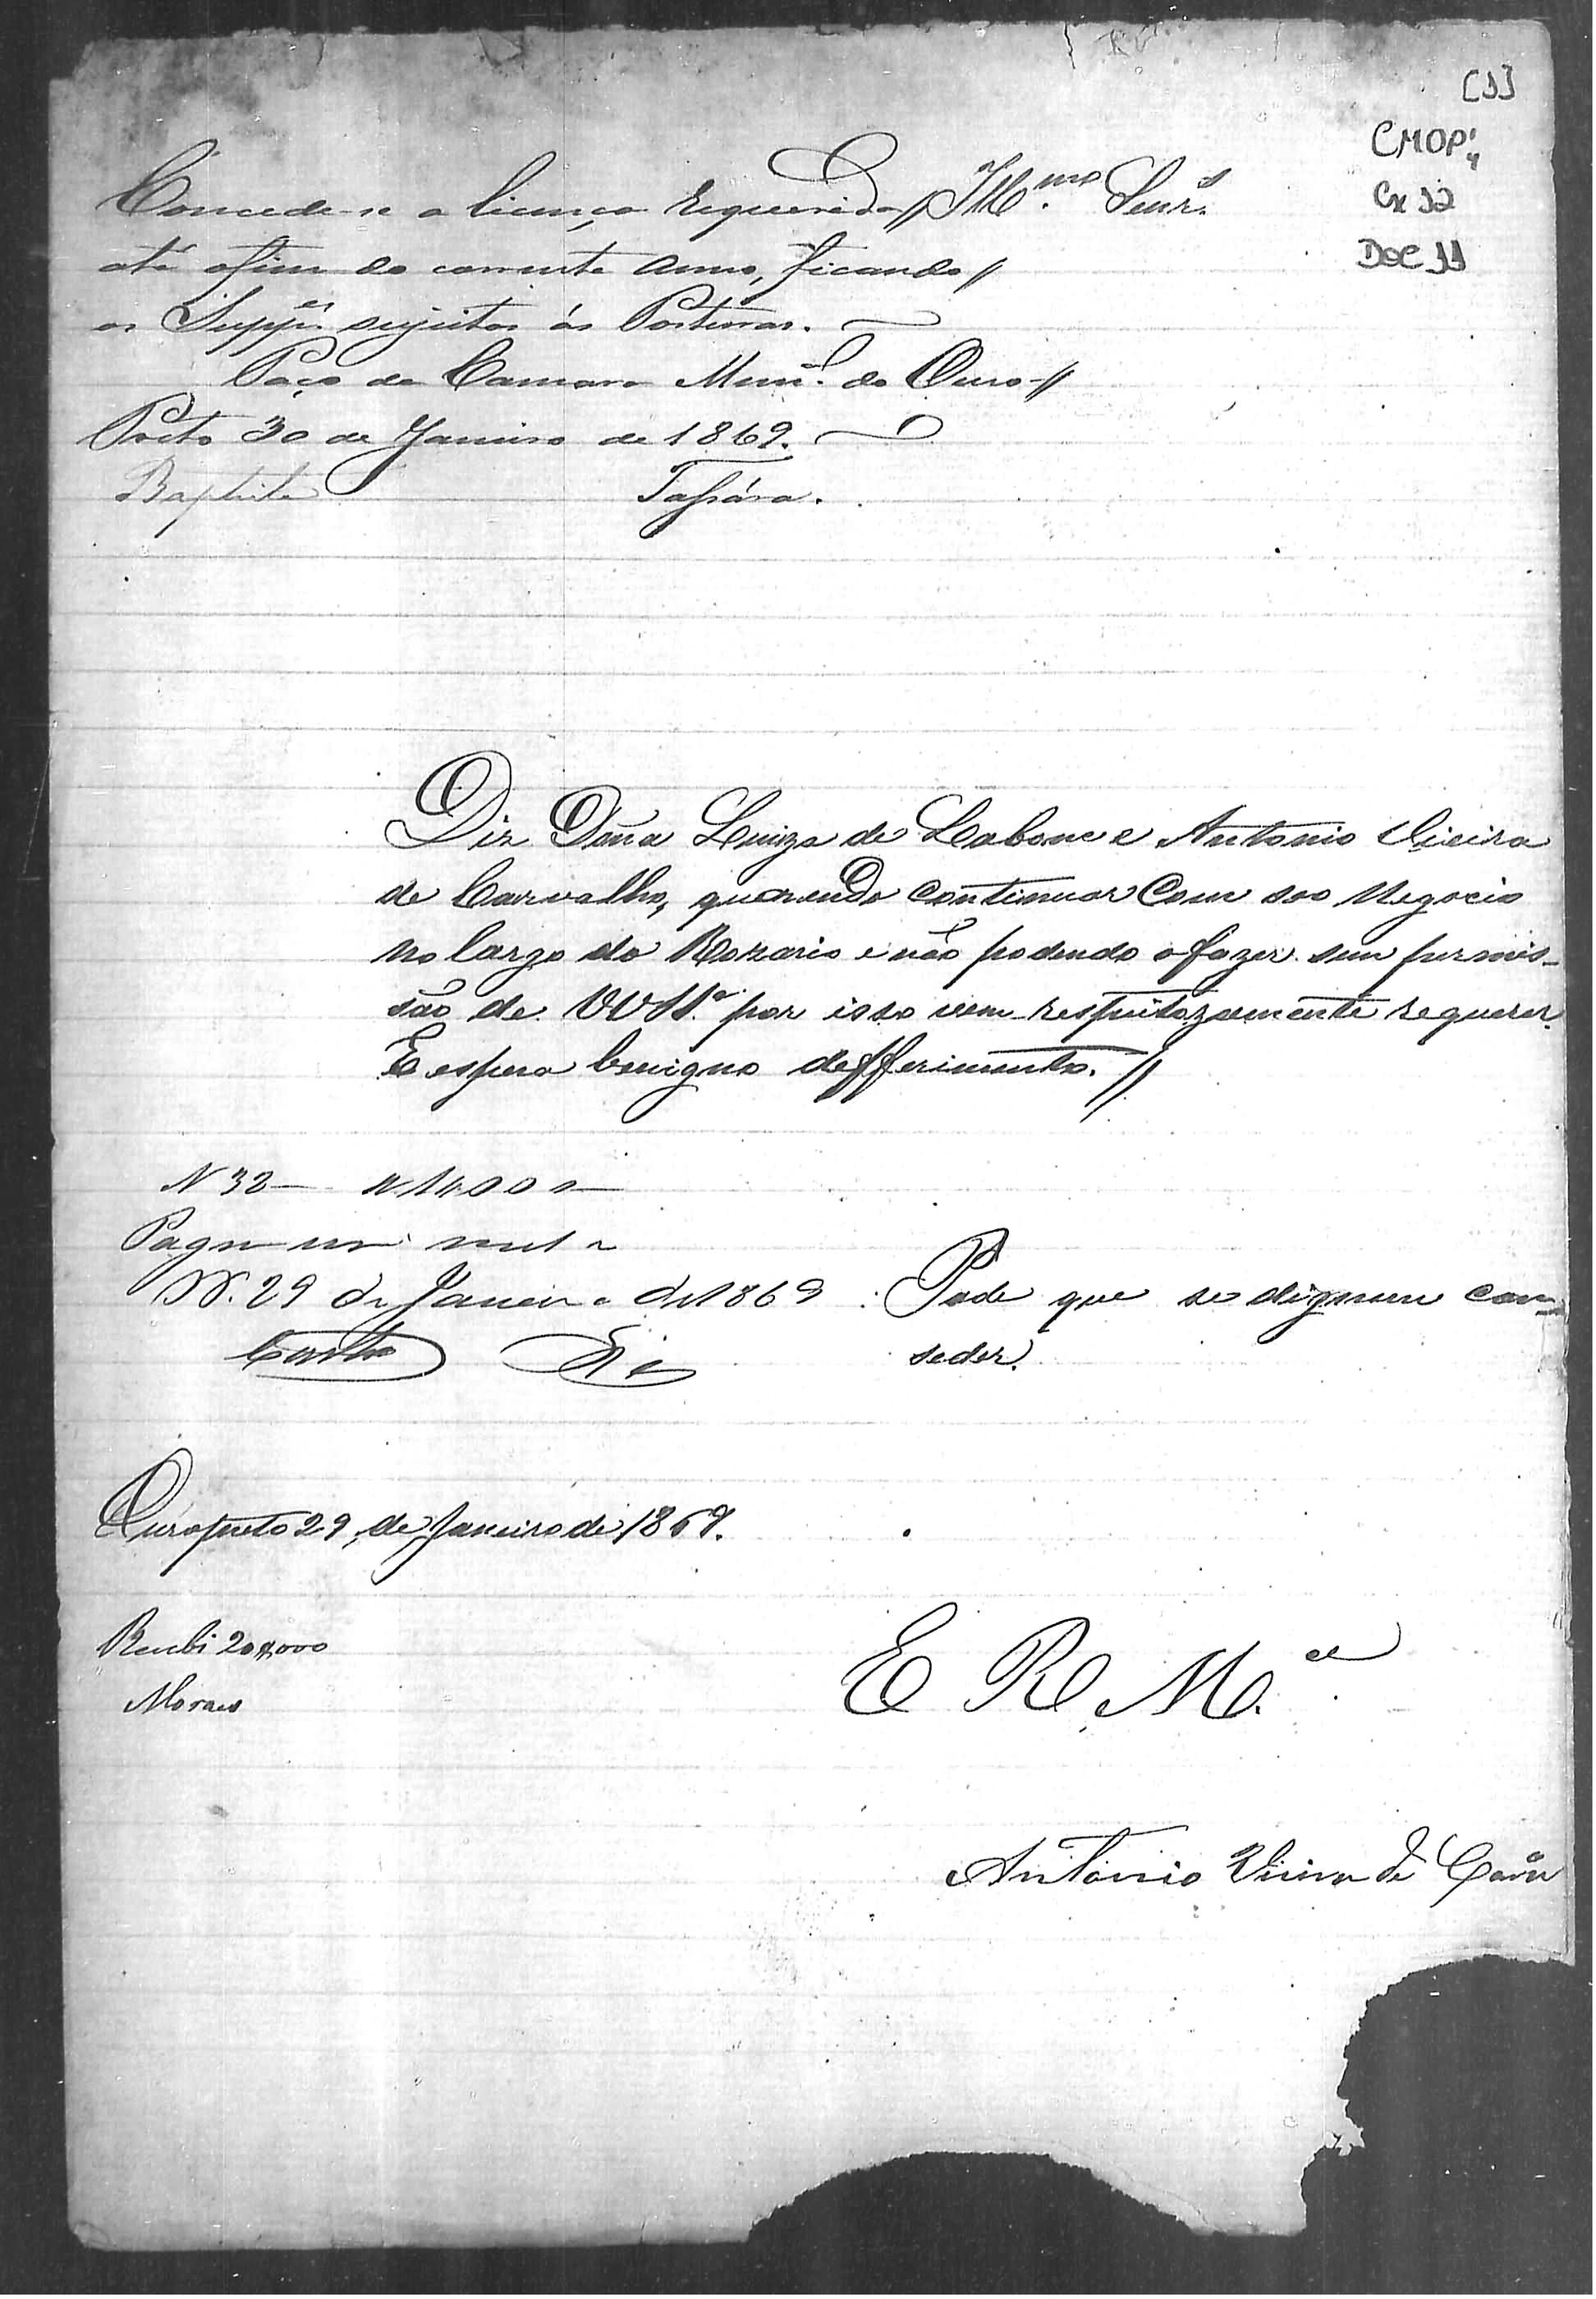 [1]
CMOP
Cx 12
DOC 11
Concede-se a licença requerida // Ill.mos Senr.s
até ofim do corrente anno, ficando //
os Supp.es sujeitos ás Posturas.
Paço da Camara Mun.al do Ouro //
Preto 30 de Janeiro de 1869.
Baptista Tassára.
Diz Dona Luiza de Labone e Antonio Vieira
de Carvalho, querendo continuar Com seo Negocio
no largo do Rozario e não podendo o fazer sem permis-
são de VV SS.as por isso vem respeitozamente requerer.
E espera benigno defferimento. //
N 32
Pagou mil r
29 de Janeiro de 1869
Pede que se dignem con-
seder.
Ouropreto 29, de Janeiro de 1869.
Recebi 20$000
Moraes
E R M.ce
Antonio Vieira de Carv.o